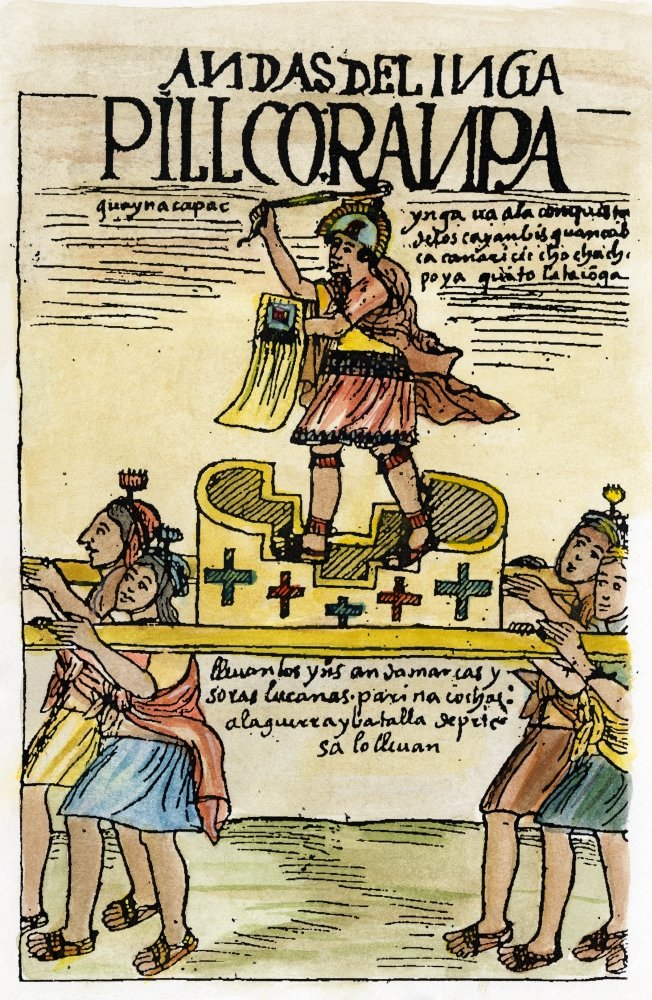 ANDAS DEL INGA
PILLCORANPA
guaynacapac
ynga ua ala conquista
delos cayanbis guancab
ca canari cicho chach
poya quito lataconga
lleuanlos yns andamarcas y
soras lucanas parinacochas
alaguerra y batalla depries
sa lo lleuan